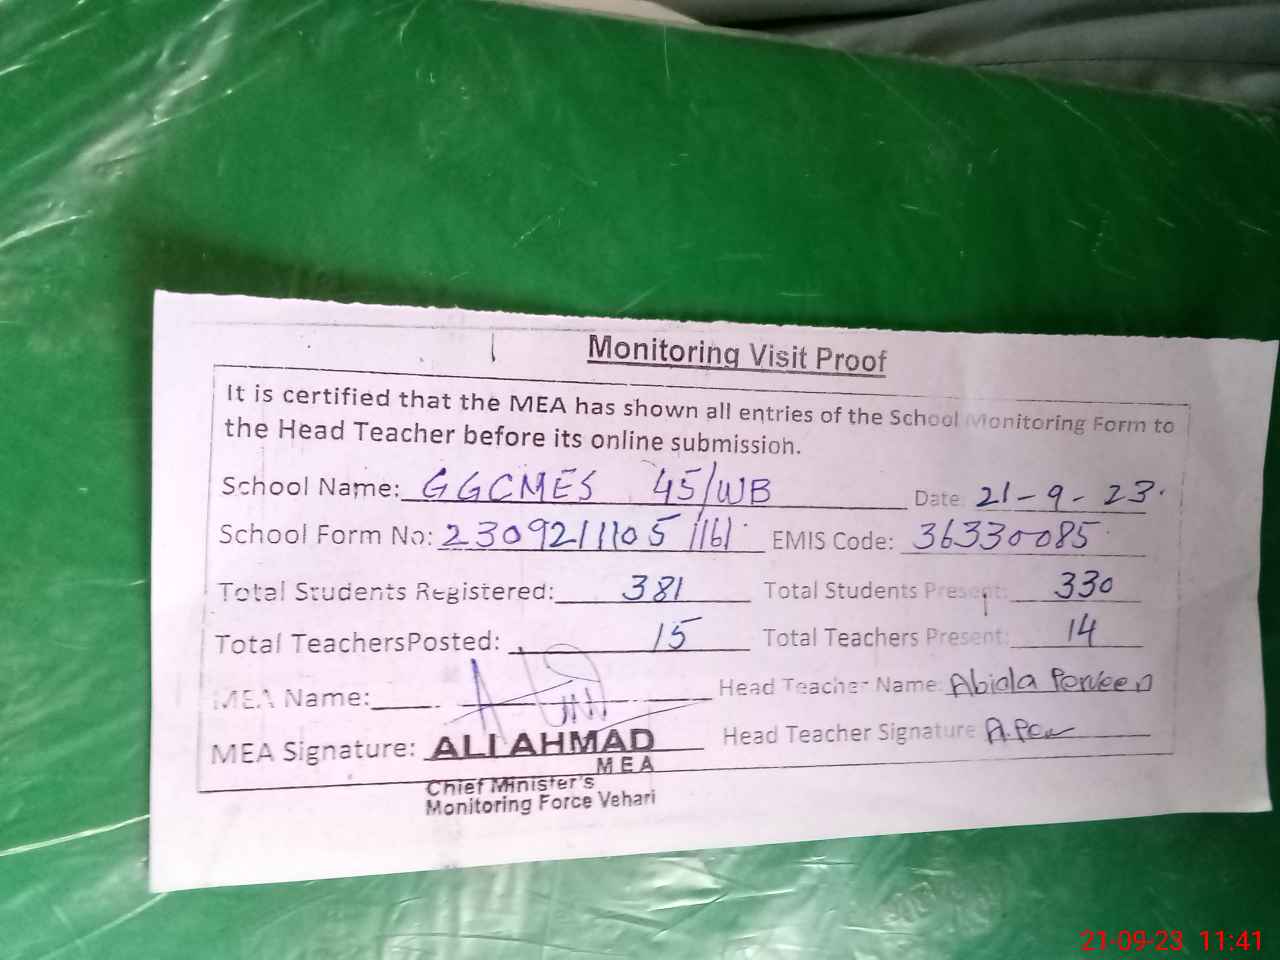 Monitoring Visit Proof
It is certified that the MEA has shown all entries of the School Monitoring Form to
the Head Teacher before its online submission.
School Name: GGCMES 45/WB Date 21-9-23.
School Form No: 23092111051161 EMIS Code: 36330085
Total Students Registered: 381 Total Students Present: 330
Total TeachersPosted: 15 Total Teachers Present: 14
MEA Name: Head Teacher Name: Abida Perveen
MEA Signature: ALI AHMAD Head Teacher Signature A.Per
MEA
Chief Minister's
Monitoring Force Vehari
21-09-23 11:41